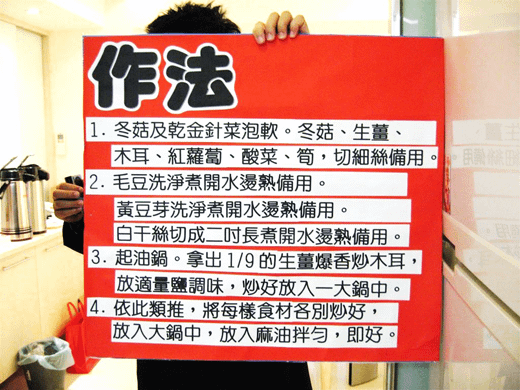 作法
1. 冬菇及乾金針菜泡軟。冬菇、生薑、
木耳、紅蘿蔔、酸菜、筍，切細絲備用。
2. 毛豆洗淨煮開水燙熟備用。
黃豆芽洗淨煮開水燙熟備用。
白干絲切成二吋長煮開水燙熟備用。
3. 起油鍋。拿出1/9的生薑爆香炒木耳，
放適量鹽調味，炒好放入一大鍋中。
4. 依此類推，將每樣食材各別炒好，
放入大鍋中，放入麻油拌勻，即好。